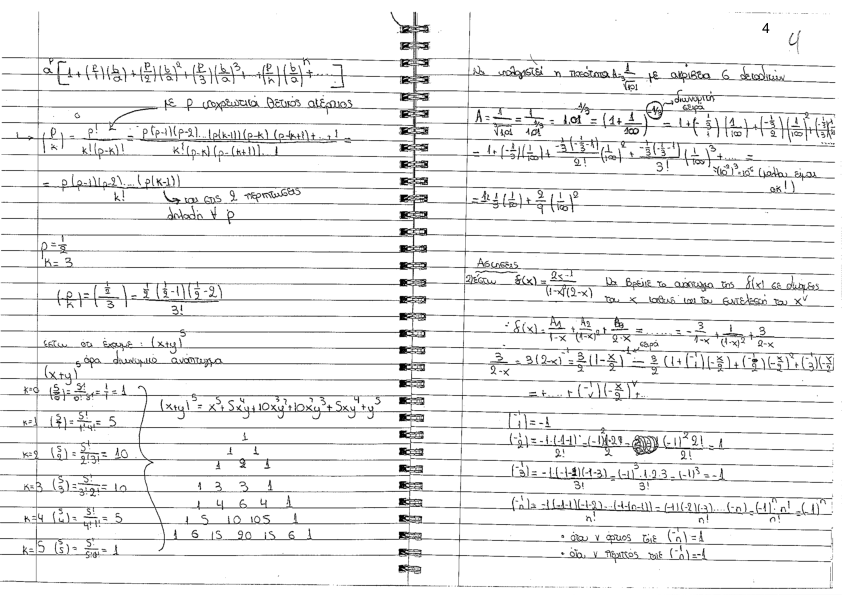 a^p [ 1 + (p 1)(b/a) + (p 2)(b/a)² + (p 3)(b/a)³ + ... + (p k)(b/a)^k + ..... ]
με p υποχρεωτικά θετικός ακέραιος
(p k) = p! / k!(p-k)! = p(p-1)(p-2)...(p(k-1))(p-k)(p-k+1)...1 / k!(p-k)(p-(k+1))...1 =
= p(p-1)(p-2)....(p(k-1)) / k!
και στις 2 περιπτώσεις
δηλαδή ∀ p
p = 1/2
k = 3
(p k) = (1/2 3) = 1/2 (1/2 -1)(1/2 -2) / 3!
έστω ότι έχουμε : (x+y)⁵
άρα διωνυμικό ανάπτυγμα
(x+y)⁵
k=0 (5 0) = 5!/0!·5! = 1/1 = 1
(x+y)⁵ = x⁵+5x⁴y+10x³y²+10x²y³+5xy⁴+y⁵
k=1 (5 1) = 5!/1!4! = 5
k=2 (5 2) = 5!/2!3! = 10
k=3 (5 3) = 5!/3!2! = 10
k=4 (5 4) = 5!/4!1! = 5
k=5 (5 5) = 5!/5!0! = 1
1
1 1
1 2 1
1 3 3 1
1 4 6 4 1
1 5 10 10 5 1
1 6 15 20 15 6 1
4
4
Να υπολογιστεί η ποσότητα A = 1/³√1,01 με ακρίβεια 6 δεκαδικών
A = 1/³√1,01 = 1/1,01^(1/3) = 1,01^(-1/3) = (1 + 1/100)^(-1/3) = 1 + (-1/3 1)(1/100) + (-1/3 2)(1/100)² + (-1/3 3)(1/100)³
διωνυμική
σειρά
= 1 + (-1/3)(1/100) + -1/3(-1/3 -1)/2! (1/100)² + -1/3(-1/3 -1)/3! (1/100)³ + ..... =
= 1 - 1/3 (1/100) + 2/9 (1/100)²
Ασκήσεις
Έστω f(x) = 2x-1 / (1-x)²(2-x) Να βρείτε το ανάπτυγμα της f(x) σε δυνάμεις
του x καθώς και τον συντελεστή του x^ν
· f(x) = A1/1-x + A2/(1-x)² + A3/2-x = ..... = -3/1-x + 1/(1-x)² + 3/2-x
σειρά
3/2-x = 3(2-x)⁻¹ = 3/2 (1-x/2)⁻¹ = 3/2 (1 + (-1 1)(-x/2) + (-1 2)(-x/2)² + (-1 3)(-x/2)
= + ..... + (-1 ν)(-x/2)^ν + ..
(-1 1) = -1
(-1 2) = -1·(-1-1)/2! = (-1)²1·2/2! = (-1)²2!/2! = 1
(-1 3) = -1·(-1-1)(-1-3)/3! = (-1)³·1·2·3/3! = (-1)³ = -1
(-1 n) = -1·(-1-1)(-1-2)...(-1-(n-1))/n! = (-1)(-2)(-3)...(-n)/n! = (-1)^n·n!/n! = (-1)^n
• όταν ν άρτιος τότε (-1 n) = 1
• όταν ν περιττός τότε (-1 n) = -1